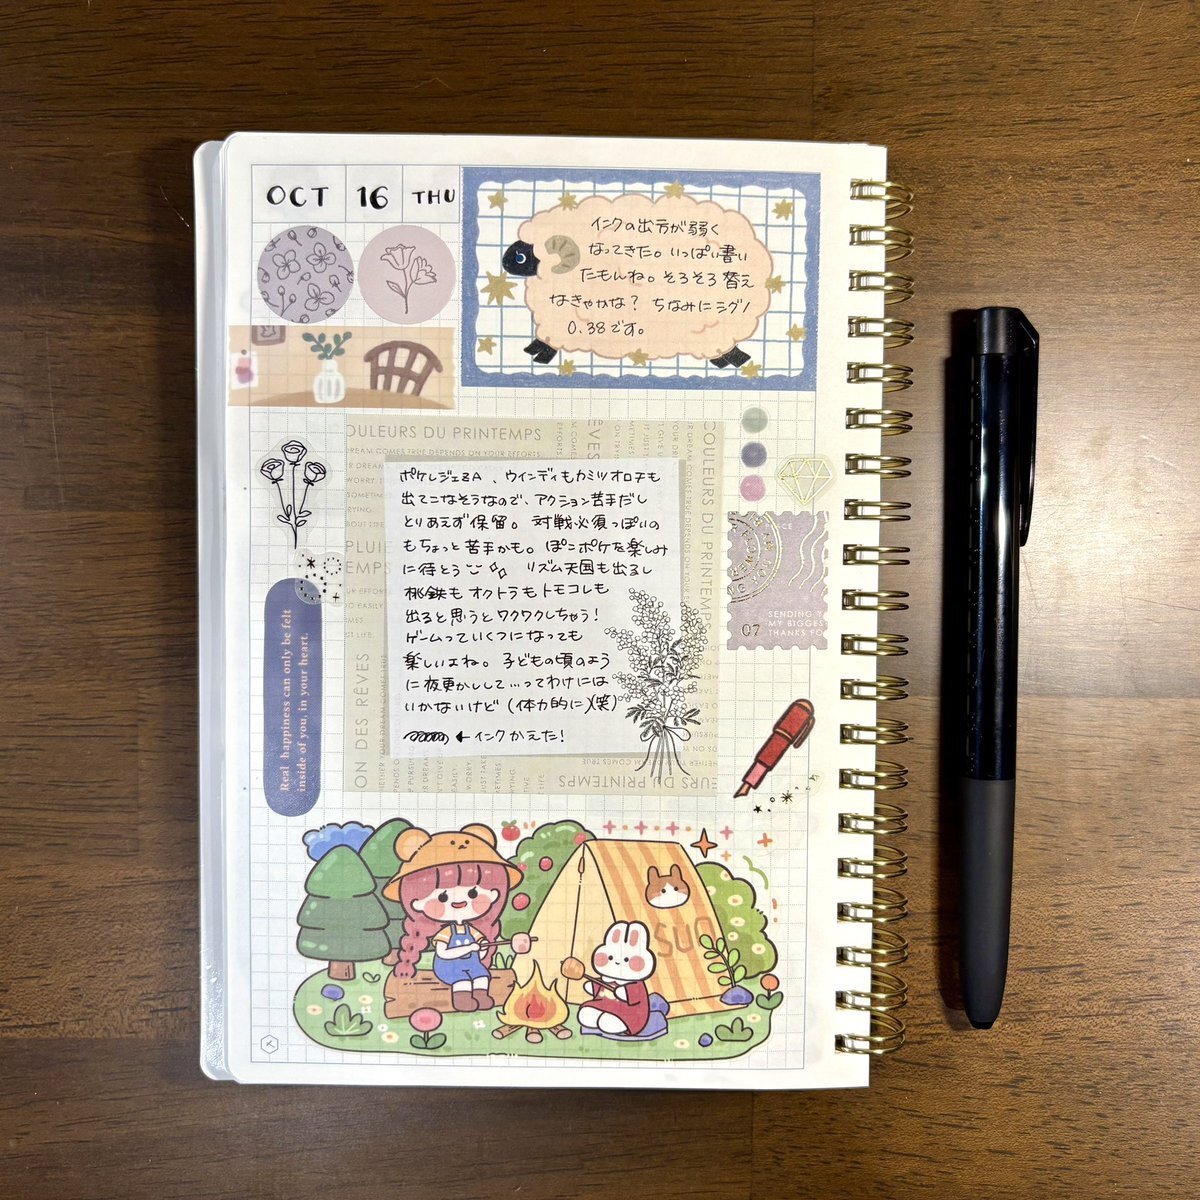 OCT 16 THU
インクの出方が弱く
なってきた。いっぱい書い
たもんね。そろそろ替え
なきゃかな？ ちなみにシグノ
0.38です。
OULEURS DU PRINTEMPS
ポケレジェZA、ウインディもカミツオロチも
出てこなそうなので、アクション苦手だし
とりあえず保留。対戦必須っぽいの
もちょっと苦手かも。ぽこポケを楽しみ
に待とう リズム天国も出るし
桃鉄もオクトラもトモコレも
出ると思うとワクワクしちゃう！
ゲームっていくつになっても
楽しいよね。子どもの頃のよう
に夜更かしして…ってわけには
いかないけど(体力的に)(笑)
←インクかえた！
COULEURS DU PRINTEMPS
RÊVES
PLUIE
EMPS
ON DES RÊVES
EURS DU PRINTEMPS
Real happiness can only be felt
inside of you, in your heart.
07
SENDING
MY BIGGES
THANKS FO
SUO